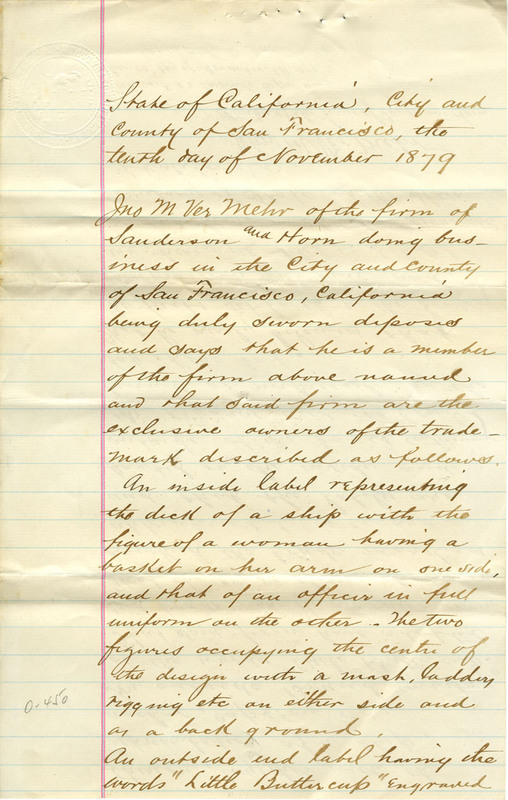 State of California, City and
County of San Francisco, the
tenth day of November 1879
Jno M Ver Mehr of the firm of
Sanderson and Horn doing bus-
iness in the City and County
of San Francisco, California
being duly sworn deposes
and says that he is a member
of the firm above named
and that said firm are the
exclusive owners of the trade-
mark described as follows.
An inside label representing
the deck of a ship with the
figure of a woman having a
basket on her arm on one side,
and that of an officer in full
uniform on the other - The two
figures occupying the centre of
the design with a mast, ladders,
rigging etc on either side and
as a back ground.
An outside end label having the
words "Little Buttercup" engraved
0-450